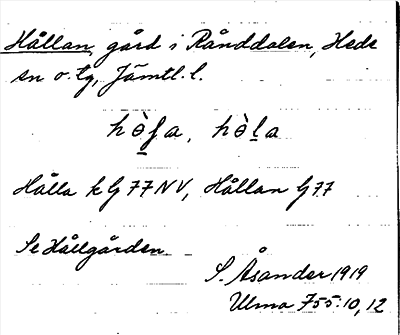 Hållan, gård i Rånddalen, Hede
sn o. tg, Jämtl. l.
hòʃa, hòḷa
Hålla k G 77 NV, Hållan G 77
Se Hållgården
S. Åsander 1919
Ulma 755:10, 12